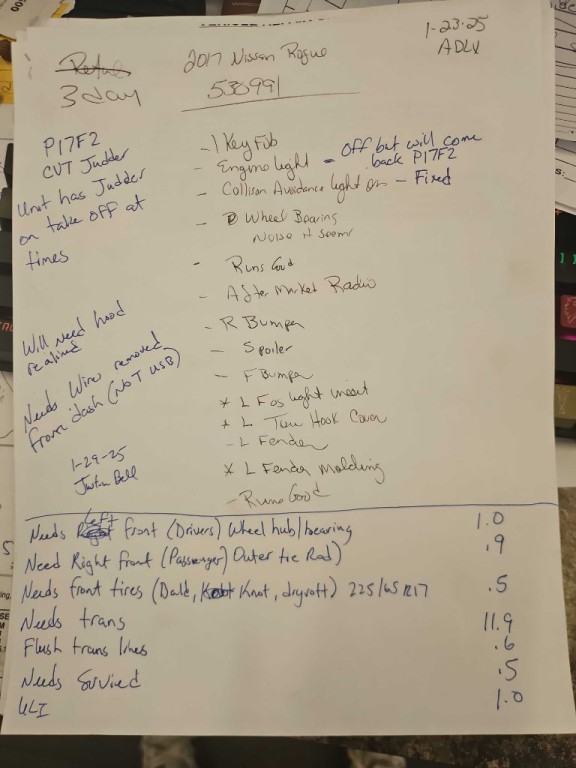 1-23-25
ADLV
2017 Nissan Rogue
3 day
530991
P17F2
CVT Judder
Unit has Judder
on take off at
times
- 1 Key Fob
- Engine light - Off but will come
back P17F2
- Collison Avoidance light on - Fixed
- Wheel Bearing
Noise it seems
- Runs Good
- After Market Radio
- R Bumper
- Spoiler
- F Bumper
* L Fog light insert
* L Tow Hook Cover
- L Fender
* L Fender Molding
- Runs Good
Will need hood
realined
Needs Wires removed
from dash (NOT USB)
1-29-25
Justin Bell
Needs left front (Drivers) Wheel hub/bearing 1.0
Need Right front (Passenger) Outer tie Rod) .9
Needs front tires (Bald, Knot, dryrott) 225/65R17 .5
Needs trans 11.9
Flush trans lines .6
Needs Serviced .5
1.0